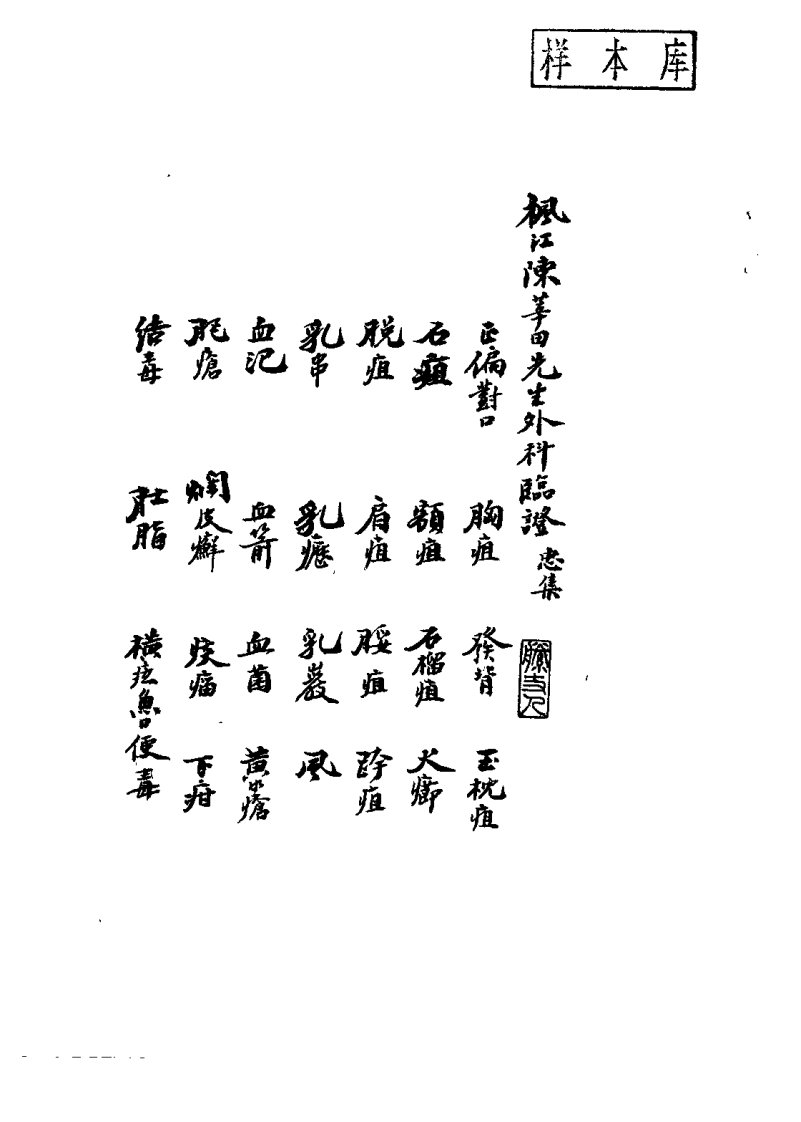 样本库
楓江陳莘田先生外科臨證 忠集
正偏對口 胸疽 發背 玉枕疽
石疽 額疽 石榴疽 火癤
脱疽 肩疽 腦疽 跨疽
乳串 乳癧 乳巖 風
血汜 血箭 血菌 黃水瘡
肥瘡 爛皮癬 痰瘤 下疳
结毒 肚脂 橫痃魚口便毒